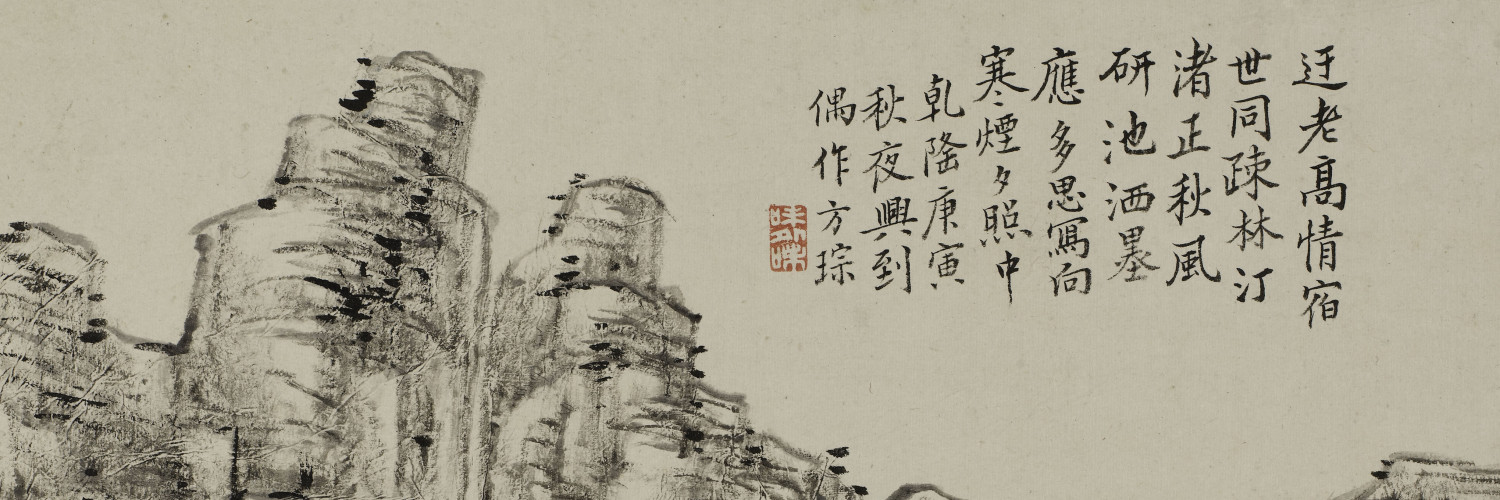 迂老高情宿
世同疎林汀
渚正秋風
研池洒墨
應多思寫向
寒煙夕照中
乾隆庚寅
秋夜興到
偶作方琮